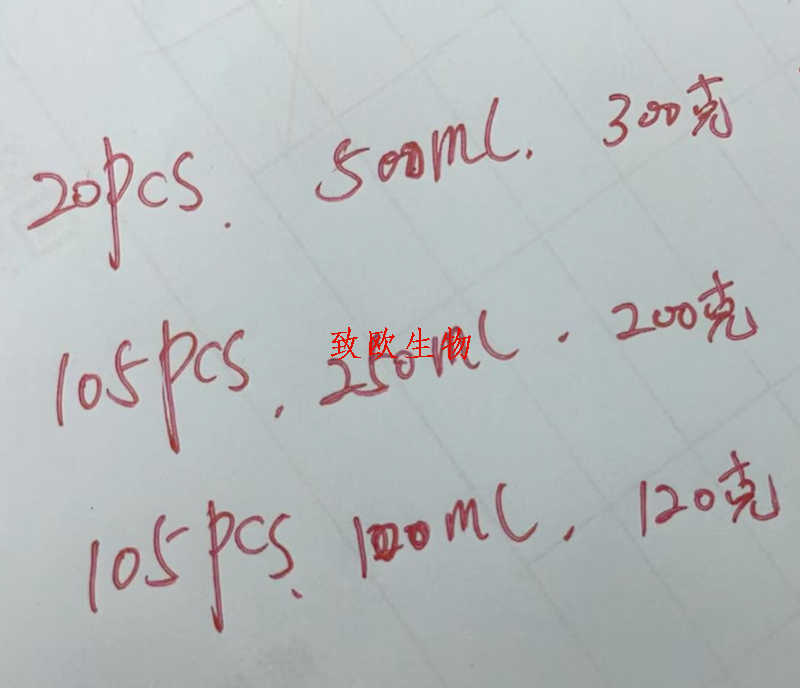 20pcs. 500ml. 300克
致欧生物
105pcs. 250ml. 200克
105pcs. 100ml. 120克